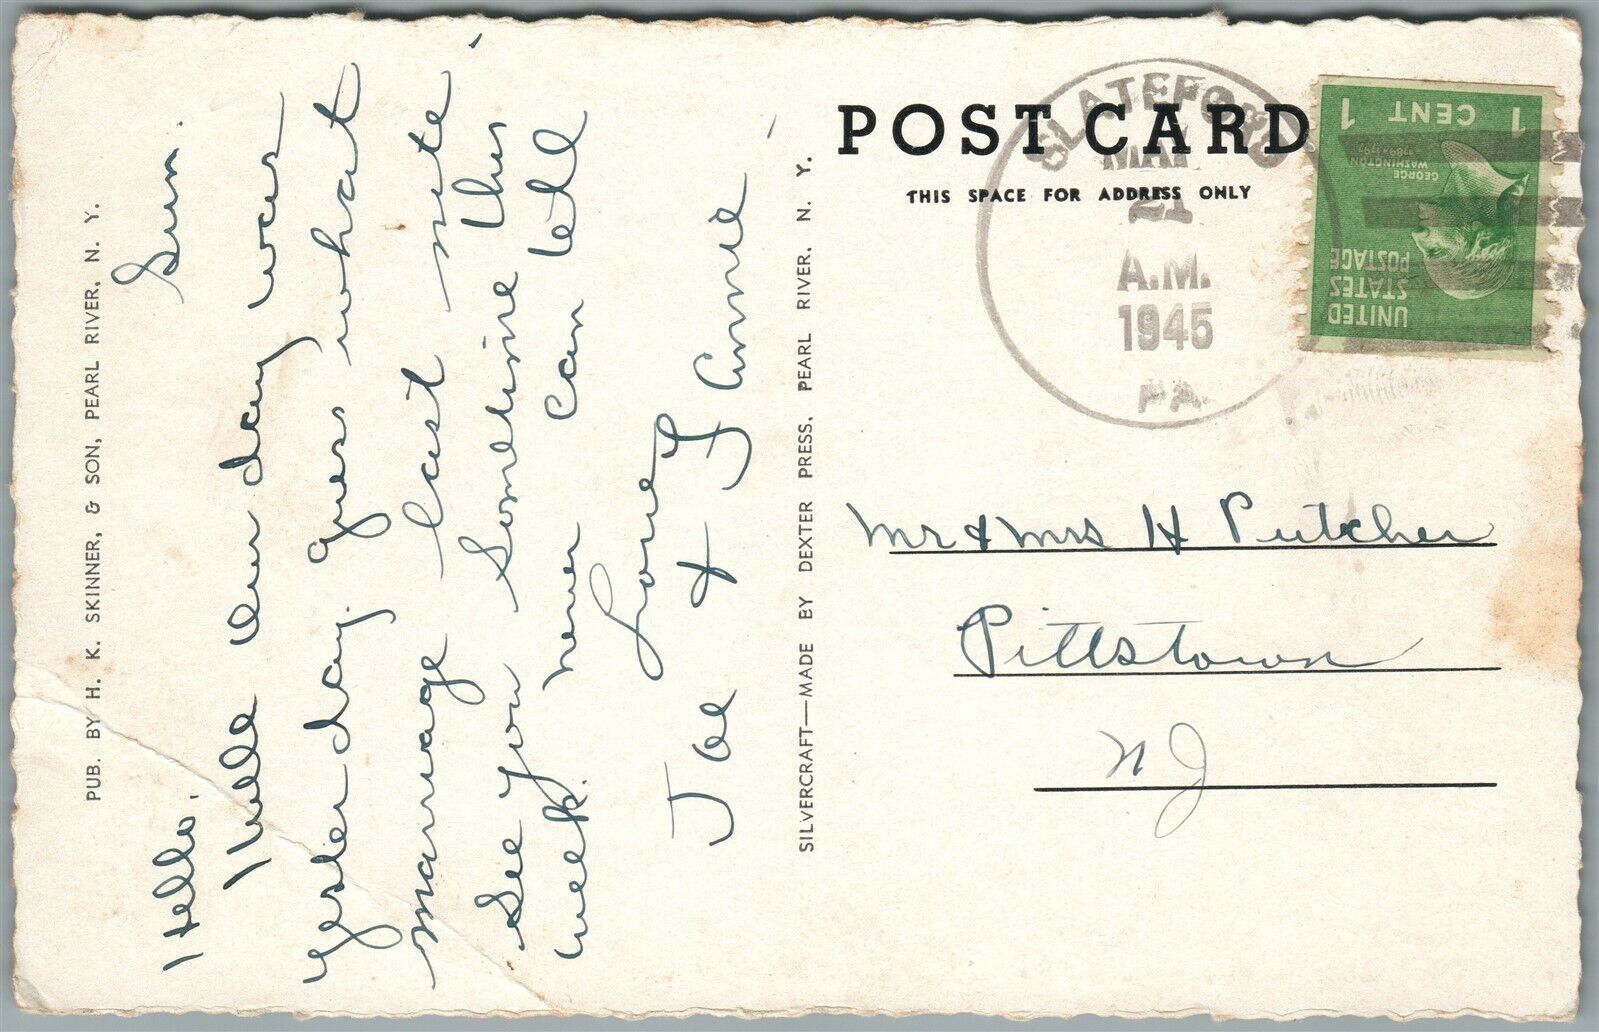 PUB. BY H. K. SKINNER, & SON, PEARL RIVER, N. Y.
Sun.
Hello.
Well our day was
yesterday. guess what
marriage last nite.
See you sometime this
week. never can tell
Love
Joe & Fannie
SILVERCRAFT—MADE BY DEXTER PRESS, PEARL RIVER, N. Y.
POST CARD
THIS SPACE FOR ADDRESS ONLY
SLATEFORD
MAY
21
A.M.
1945
PA.
1 CENT 1
GEORGE
WASHINGTON
1789-1797
UNITED
STATES
POSTAGE
Mr & Mrs H Putcher
Pittstown
NJ